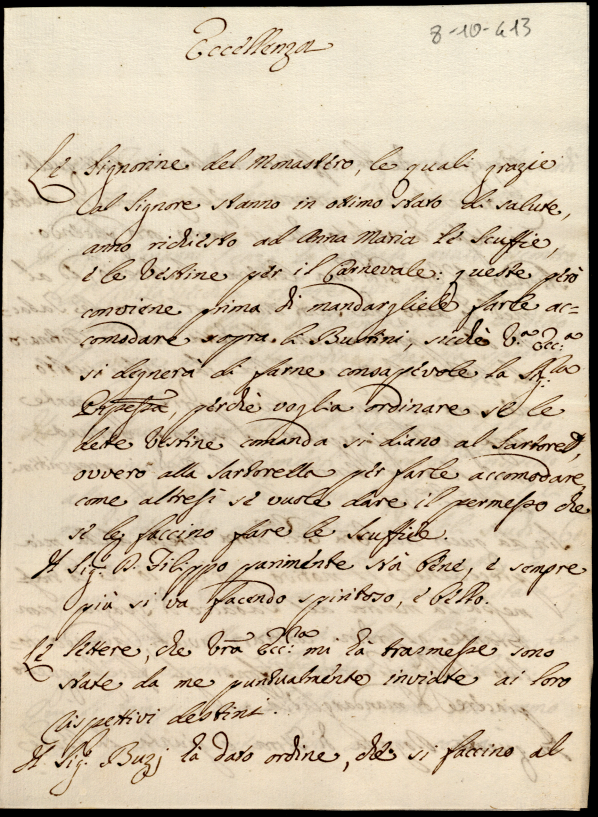 8-10-413
Eccellenza
Le Signorine del Monastero, le quali grazie
al Signore stanno in ottimo stato di salute,
anno richiesto ad Anna Maria le Scuffie,
e le Vestine per il Carnevale: queste però
conviene prima di mandargliele farle ac=
comodare sopra li Bustini, sicche V.ª Ecc.ª
si degnerà di farne consapevole la Sig.ra
Ppessa, perche voglia ordinare se le
dete Vestine comanda si diano al Sartorell,
ovvero alla Sartorella per farle accomodare,
come altresi se vuole dare il permesso che
se lej faccino fare le scuffie.
Il Sig. D. Filippo parimente stà bene, e sempre
più si va facendo spiritoso, e bello.
Le lettere, che Vrã Ecc.za mi hà trasmesse sono
state da me puntualmente inviate ai loro
rispettivi destini.
Il Sig. Buzj hà dato ordine, che si faccino al